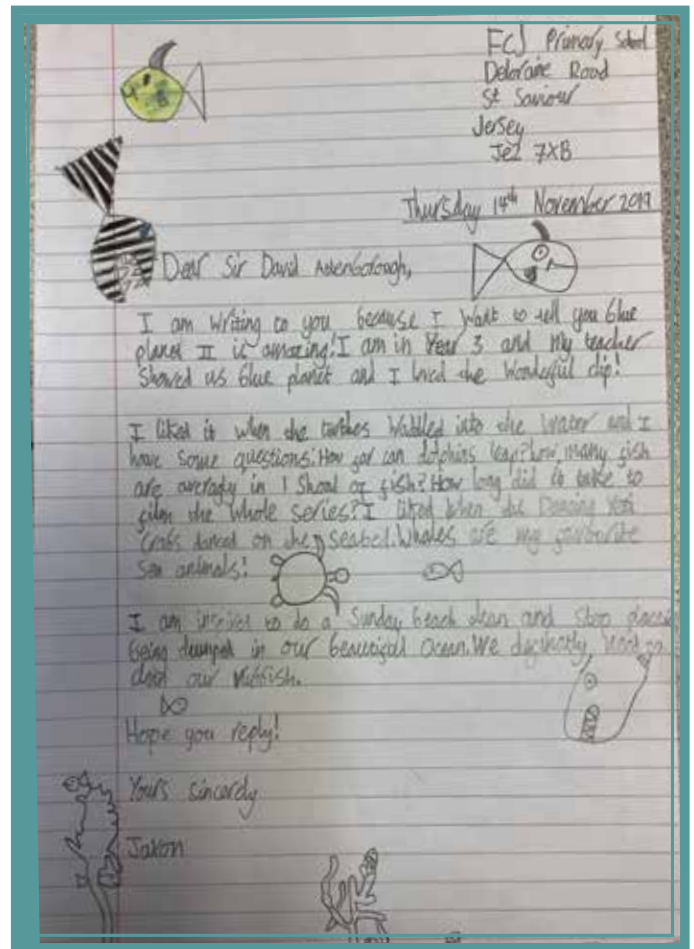 FCJ Primary School
Deloraine Road
St Saviour
Jersey
JE2 7XB
Thursday 14th November 2019
Dear Sir David Attenborough,
I am writing to you because I want to tell you blue
planet II is amazing! I am in Year 3 and my teacher
showed us blue planet and I loved the wonderful clip!
I liked it when the turtles waddled into the water and I
have some questions. How far can dolphins leap? how many fish
are averagly in 1 Shoal of fish? How long did it take to
film the whole series? I liked when the Dancing Yeti
Crabs danced on the seabed. Whales are my favourite
Sea animals!
I am inspired to do a Sunday beach clean and stop plastic
being dumped in our beautiful Ocean. We definitely need to
clean our rubbish.
Hope you reply!
Yours sincerely